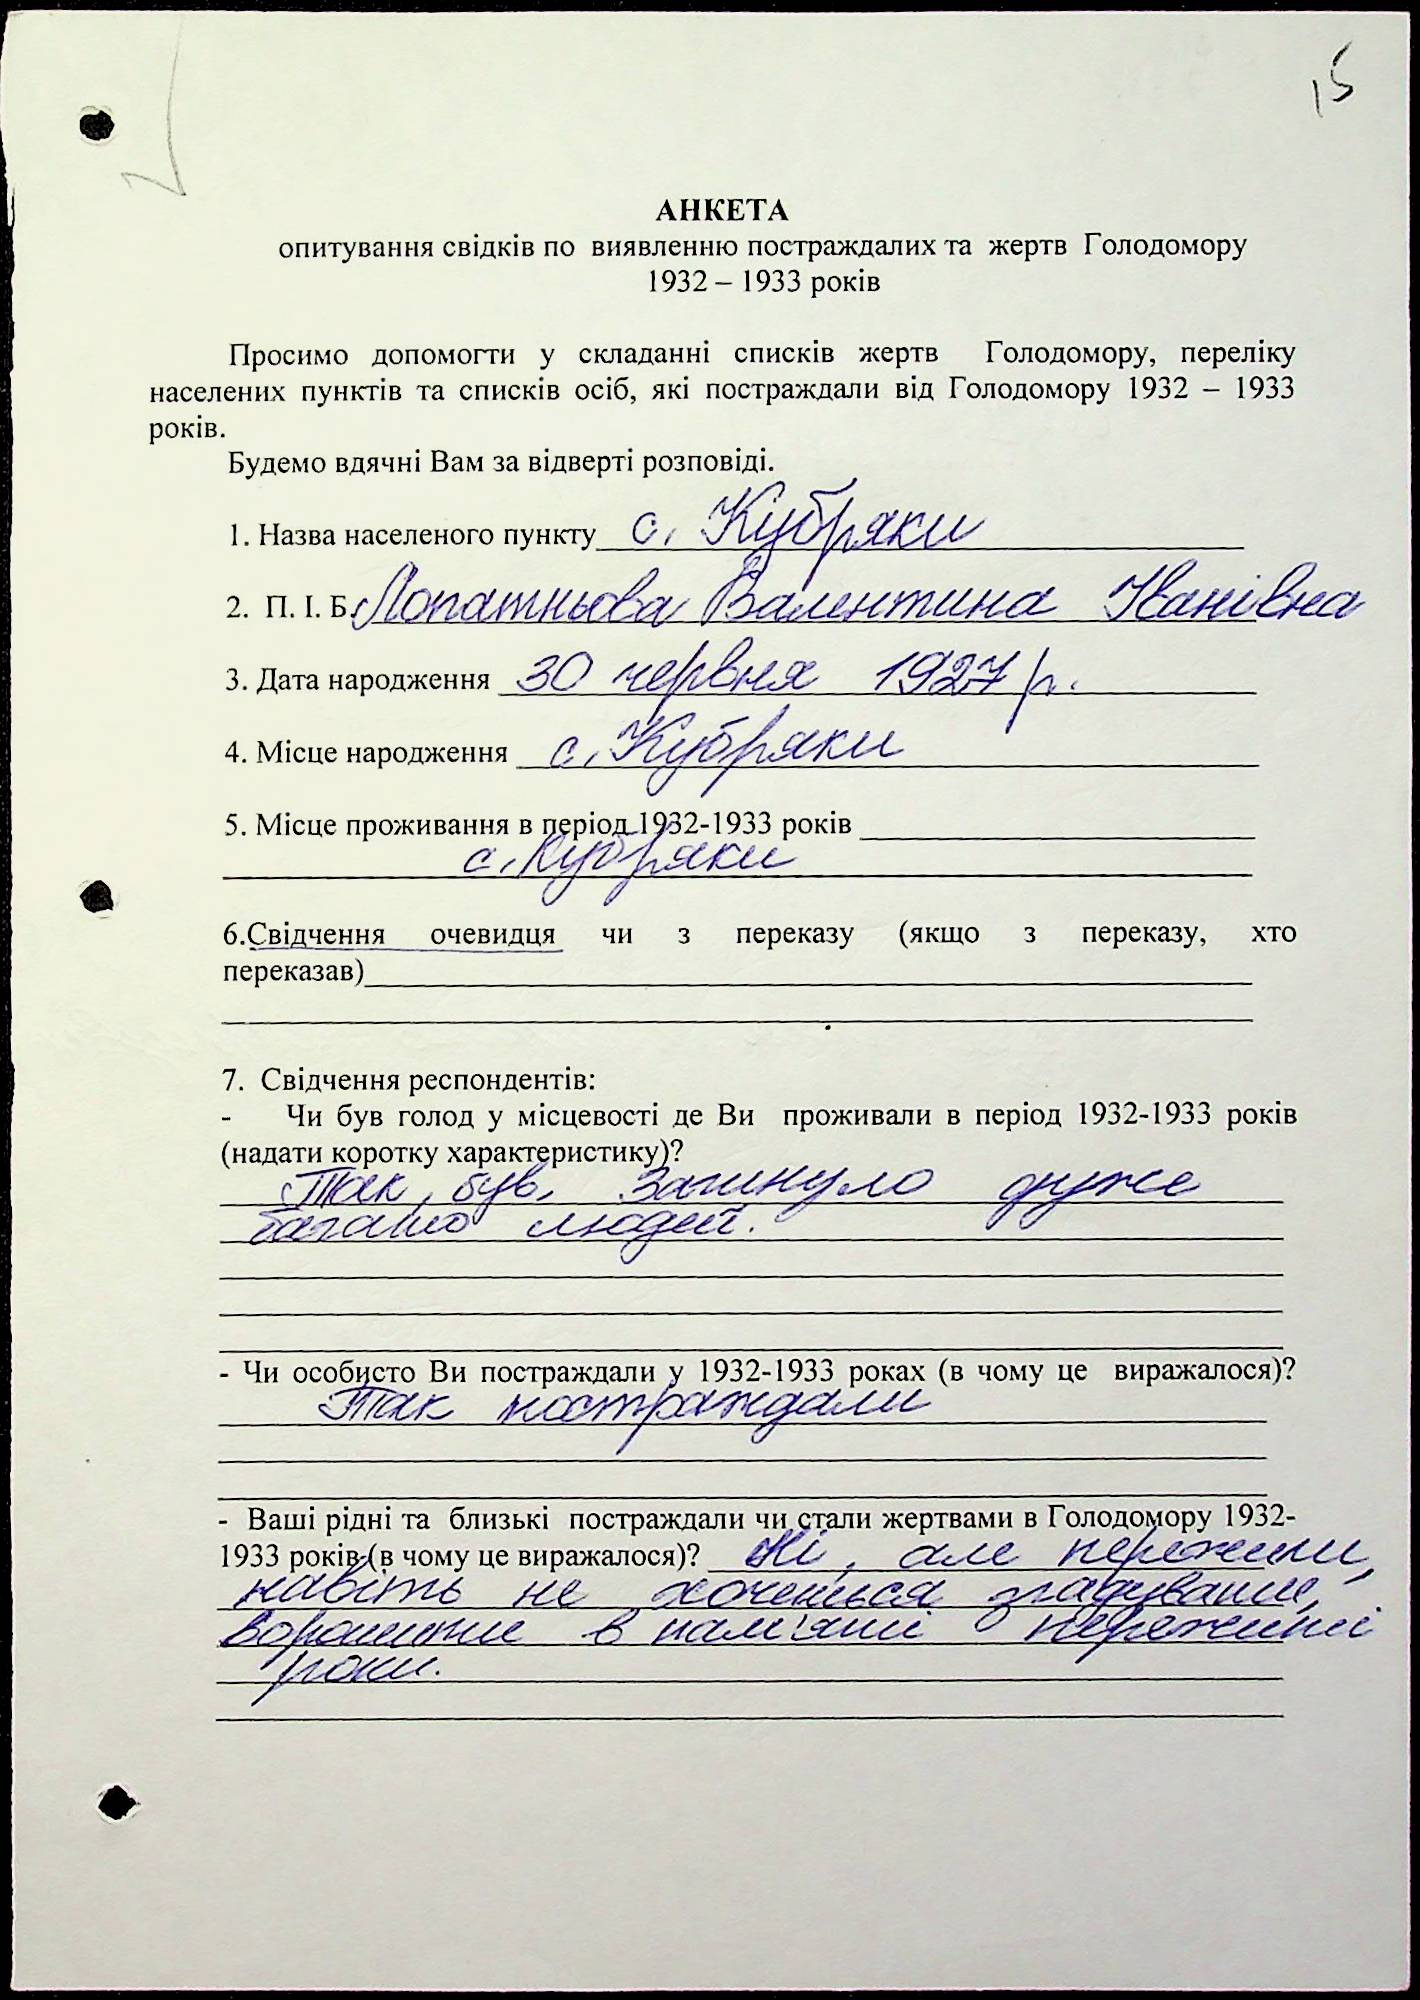 15
АНКЕТА
опитування свідків по виявленню постраждалих та жертв Голодомору
1932 – 1933 років
Просимо допомогти у складанні списків жертв Голодомору, переліку
населених пунктів та списків осіб, які постраждали від Голодомору 1932 – 1933
років.
Будемо вдячні Вам за відверті розповіді.
1. Назва населеного пункту с. Кубряки
2. П. І. Б. Лопатньова Валентина Іванівна
3. Дата народження 30 червня 1927 р.
4. Місце народження с. Кубряки
5. Місце проживання в період 1932-1933 років
с. Кубряки
6.Свідчення очевидця чи з переказу (якщо з переказу, хто
переказав)
7. Свідчення респондентів:
- Чи був голод у місцевості де Ви проживали в період 1932-1933 років
(надати коротку характеристику)?
Так, був. Загинуло дуже
багато людей.
- Чи особисто Ви постраждали у 1932-1933 роках (в чому це виражалося)?
Так постраждали
- Ваші рідні та близькі постраждали чи стали жертвами в Голодомору 1932-
1933 років (в чому це виражалося)? Ні, але пережили,
навіть не хочеться згадувати,
ворошити в пам'яті пережиті
роки.